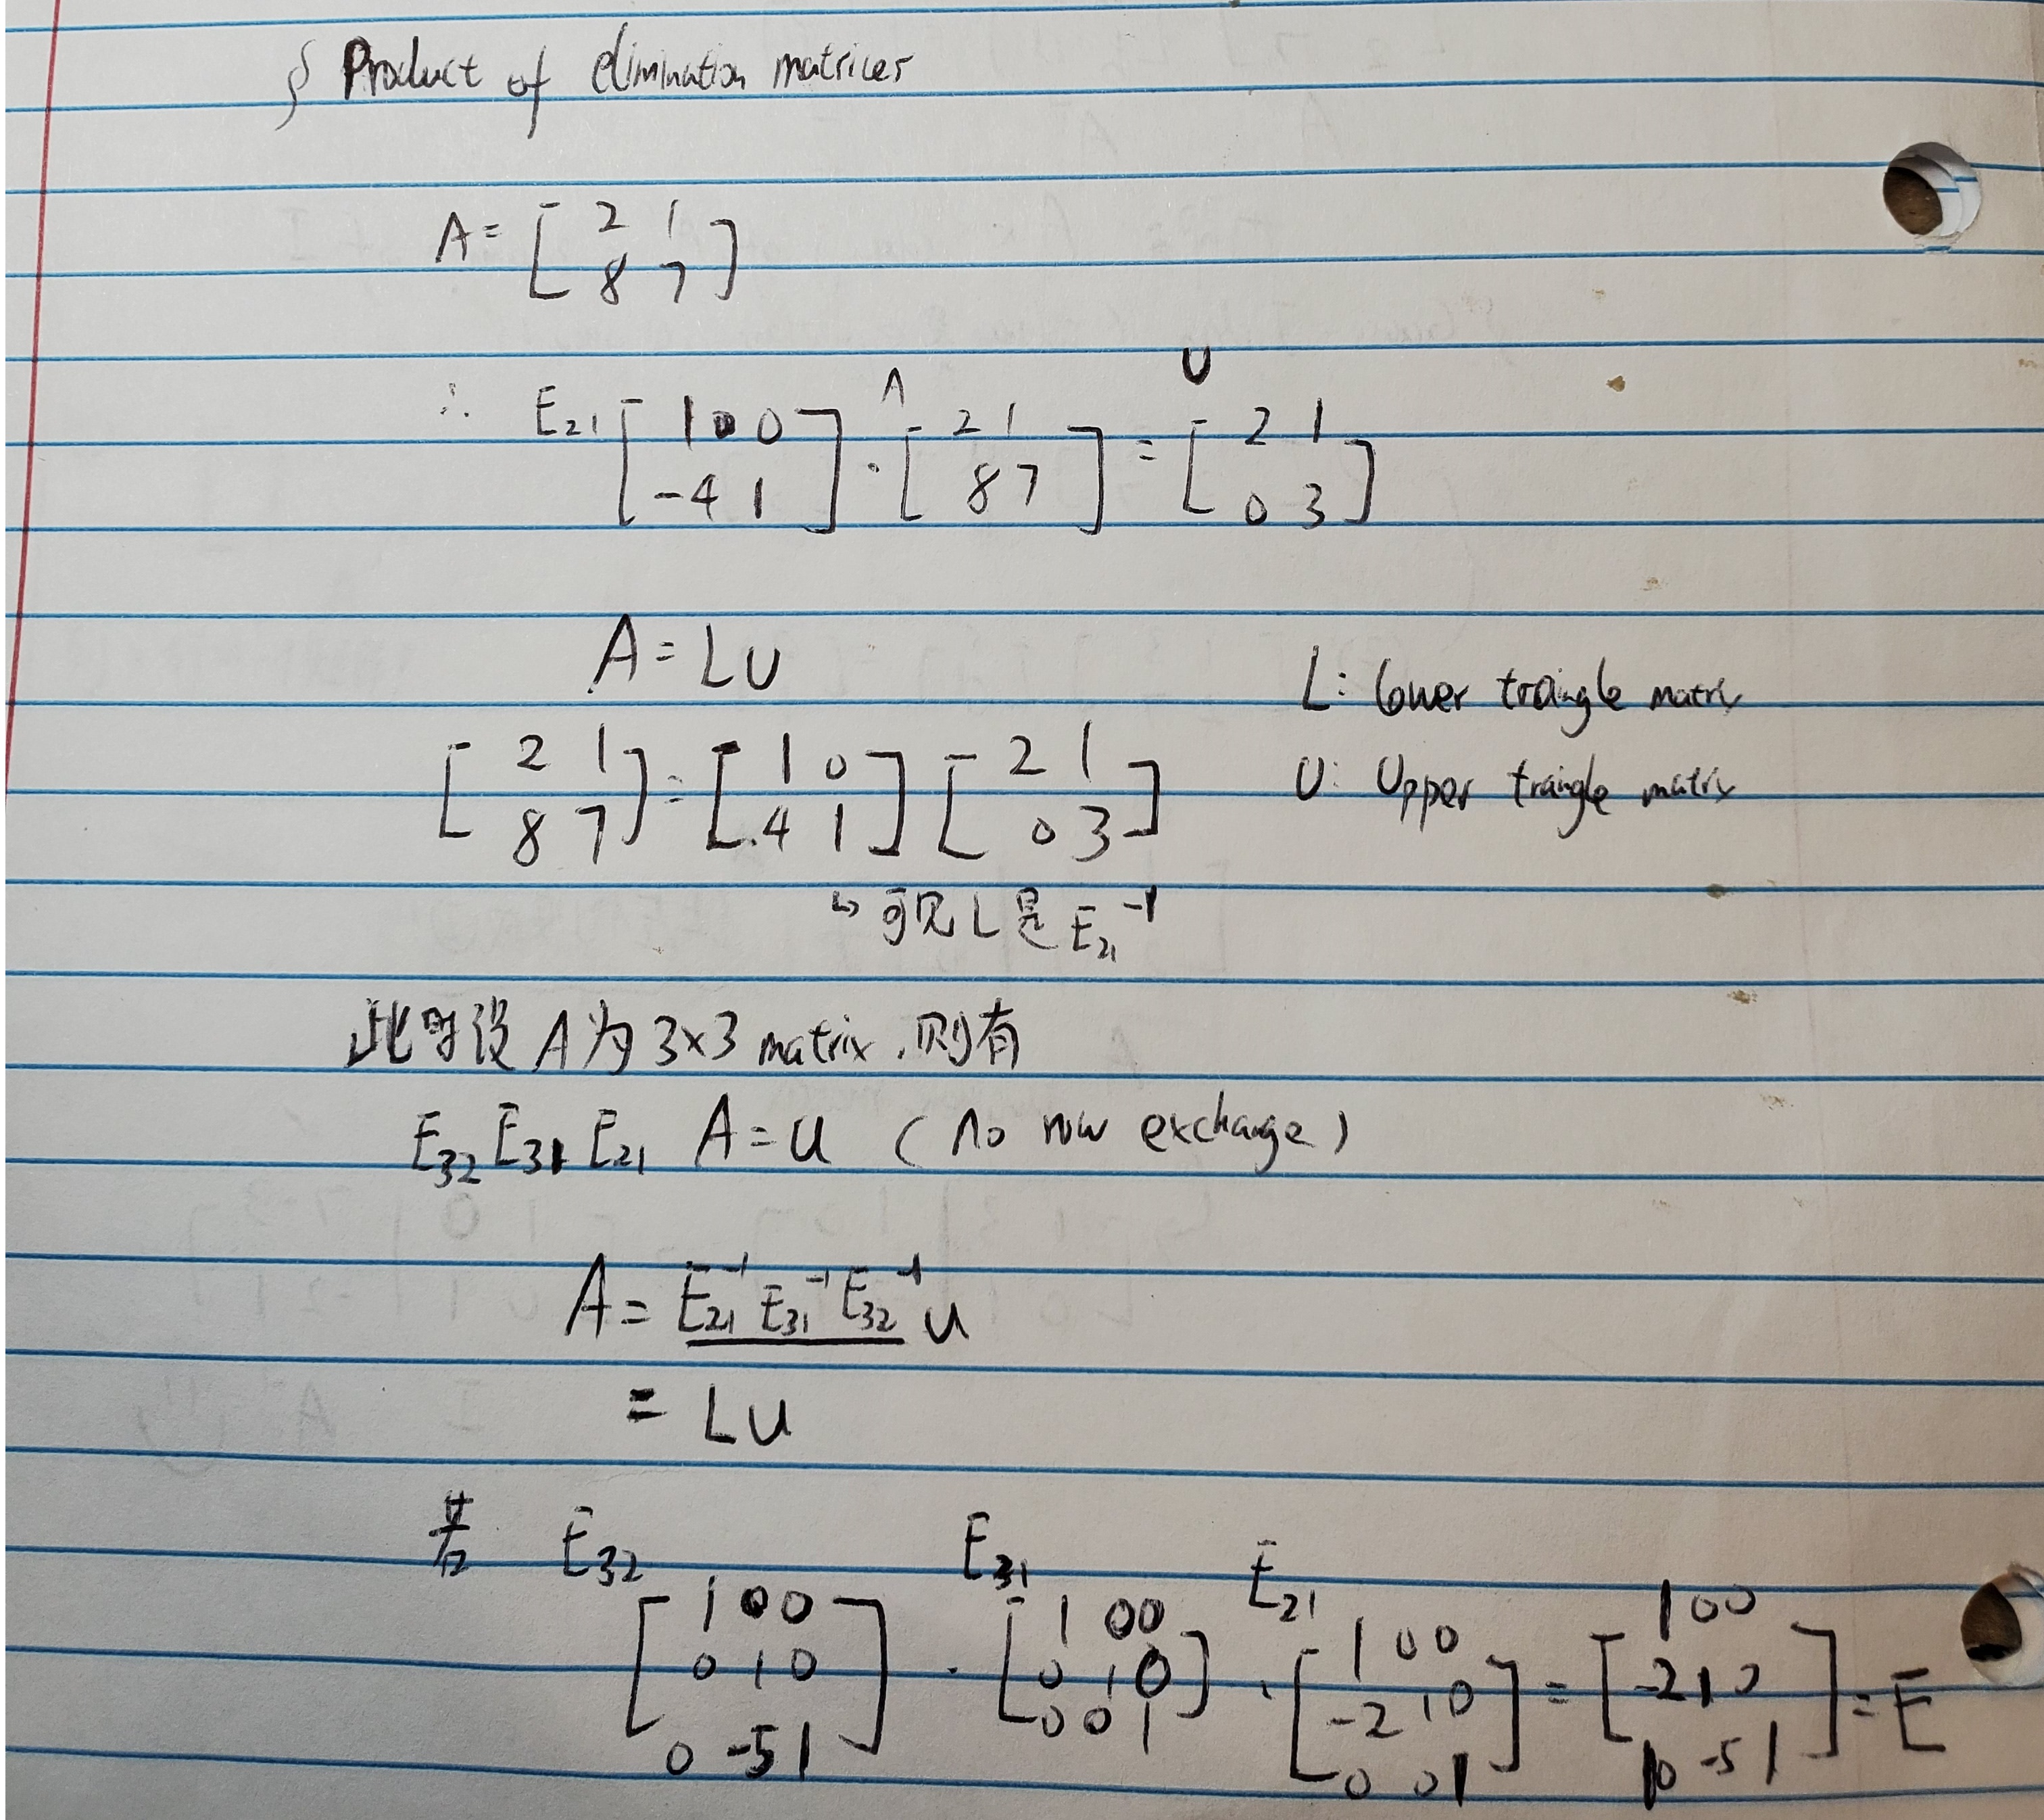 § Product of elimination matrices
A = [ 2 1
8 7 ]
∴ E₂₁ [ 1 0 0 -4 1 ] · A [ 2 1 8 7 ] = U [ 2 1 0 3 ]
A = LU
L: lower traingle matrix
[ 2 1 8 7 ] = [ 1 0 4 1 ] [ 2 1 0 3 ]
U: Upper traingle matrix
↳ 可见 L 是 E₂₁⁻¹
此时设 A 为 3×3 matrix, 则有
E₃₂ E₃₁ E₂₁ A = U ( no row exchange )
A = E₂₁⁻¹ E₃₁⁻¹ E₃₂⁻¹ U
= LU
若 E₃₂ E₃₁ E₂₁
[ 1 0 0 0 1 0 0 -5 1 ] · [ 1 0 0 0 1 0 0 0 1 ] · [ 1 0 0 -2 1 0 0 0 1 ] = [ 1 0 0 -2 1 0 10 -5 1 ] = E